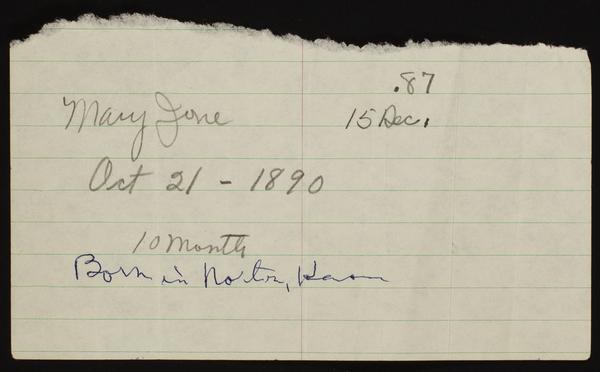 .87
Mary Jone
15 Dec.
Oct 21 - 1890
10 Month
Born in Norton, Kan